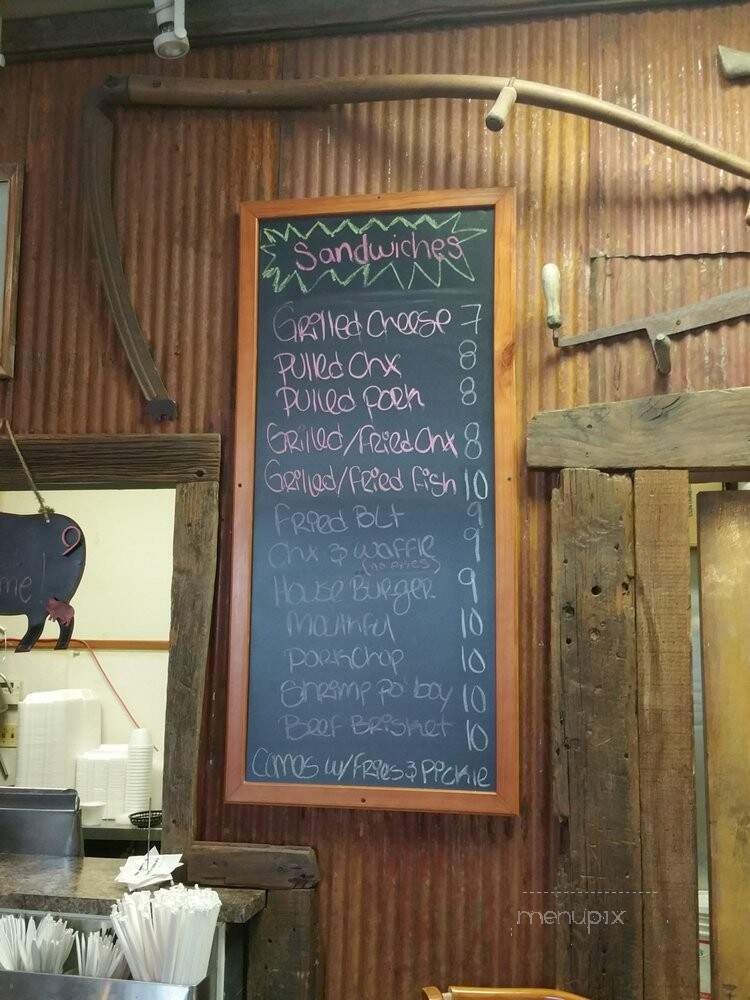 Sandwiches
Grilled Cheese 7
Pulled Chx 8
Pulled Pork 8
Grilled/Fried Chx 8
Grilled/Fried Fish 10
Fried BLT 9
Chx & Waffle 9
(no fries)
House Burger 9
Mouthful 10
Porkchop 10
Shrimp Po boy 10
Beef Brisket 10
Comes w/ Fries & Pickle
me!
menupix